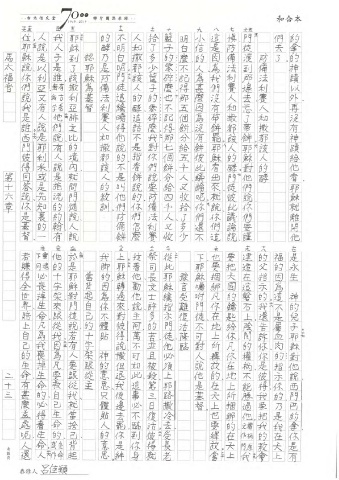 7000
和合本
約拿的神蹟以外再沒有神蹟給他看耶穌就離開他
們去了
防備法利賽人和撒都該人的酵
門徒渡到那邊去忘了帶餅耶穌對他們說你們要謹
慎防備法利賽人和撒都該人的酵門徒彼此議論說
這是因為我們沒有帶餅罷耶穌看出來就說你們這
小信的人為甚麼因為沒有餅彼此議論呢你們還不
明白麼不記得那五個餅分給五千人又收拾了多少
籃子的零碎麼也不記得那七個餅分給四千人又收
拾了多少筐子的零碎麼我對你們說要防備法利賽
人和撒都該人的酵這話不是指著餅說的你們怎麼
不明白呢門徒這纔曉得他說的不是叫他們防備餅
的酵乃是防備法利賽人和撒都該人的教訓
認耶穌為基督
耶穌到了該撒利亞腓立比的境內就問門徒說人說
我人子是誰他們說有人說是施洗的約翰有
人說是以利亞又有人說是耶利米或是先知裏的一
位耶穌說你們說我是誰西門彼得回答說你是基督
是永生 神的兒子耶穌對他說西門巴約拿你是有
福的因為這不是屬血肉的指示你的乃是我在天上
的父指示的我還告訴你你是彼得我要把我的教會
建造在這磐石上陰間的權柄不能勝過他
要把天國的鑰匙給你凡你在地上所捆綁的在天上
也要捆綁凡你在地上所釋放的在天上也要釋放當
下耶穌囑咐門徒不可對人說他是基督
預言受難復活降臨
從此耶穌纔指示門徒他必須上耶路撒冷去受長老
祭司長文士許多的苦並且被殺第三日復活彼得就
拉著他勸他說主阿萬不可如此這事必不臨到你身
上耶穌轉過來對彼得說撒但退我後邊去罷你是絆
我腳的因為你不體貼 神的意思只體貼人的意思
當背起自己的十字架跟從主
於是耶穌對門徒說若有人要跟從我就當捨己背起
他的十字架來跟從我因為凡要救自己生命的
必喪掉生命凡為我喪掉生命的必得著生命人
若賺得全世界賠上自己的生命有甚麼益處呢人還
馬太福音
第十六章
二十三